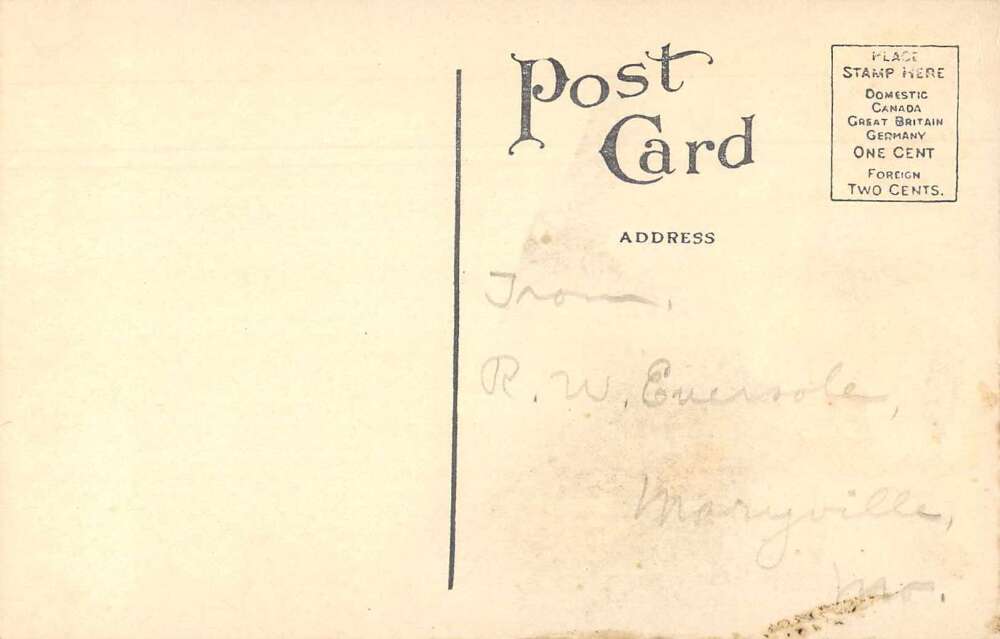 Post
Card
PLACE
STAMP HERE
DOMESTIC
CANADA
GREAT BRITAIN
GERMANY
ONE CENT
FOREIGN
TWO CENTS.
ADDRESS
From,
R. W. Eversole,
Maryville,
Mo.